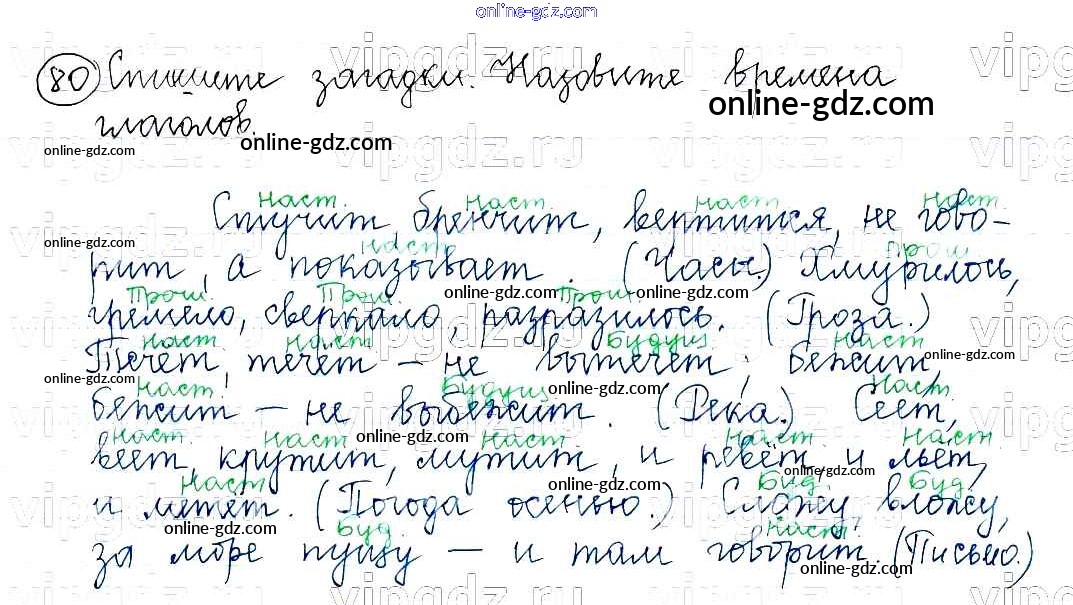 online-gdz.com
80 Спишите загадки. Назовите времена
online-gdz.com
глаголов.
online-gdz.com online-gdz.com
наст. наст. наст. наст.
Стучит, бренчит, вертится, не гово-
online-gdz.com наст. прош.
рит, а показывает. (Часы.) Хмурилось,
Прош. Прош. online-gdz.com Прош. online-gdz.com
гремело, сверкало, разразилось. (Гроза.)
наст. наст. Будущ. наст.
Течёт, течёт – не вытечет; бежит, online-gdz.com
online-gdz.com наст. Будущ. online-gdz.com Наст.
бежит – не выбежит. (Река.) Сеет,
наст. наст. online-gdz.com наст. наст. наст.
веет, крутит, мутит, и ревёт, и льёт,
наст. online-gdz.com online-gdz.com Буд. Буд.
и метёт. (Погода осенью.) Сложу, вложу,
online-gdz.com Буд. наст.
за море пущу – и там говорит. (Письмо.)
online-gdz.com
vipgdz.ru